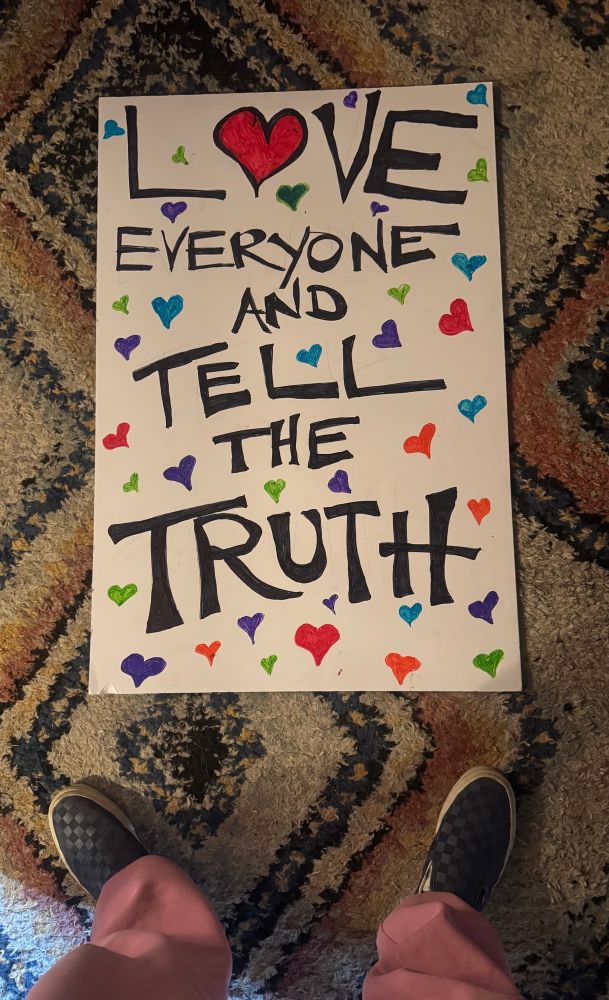 LOVE
EVERYONE
AND
TELL
THE
TRUTH